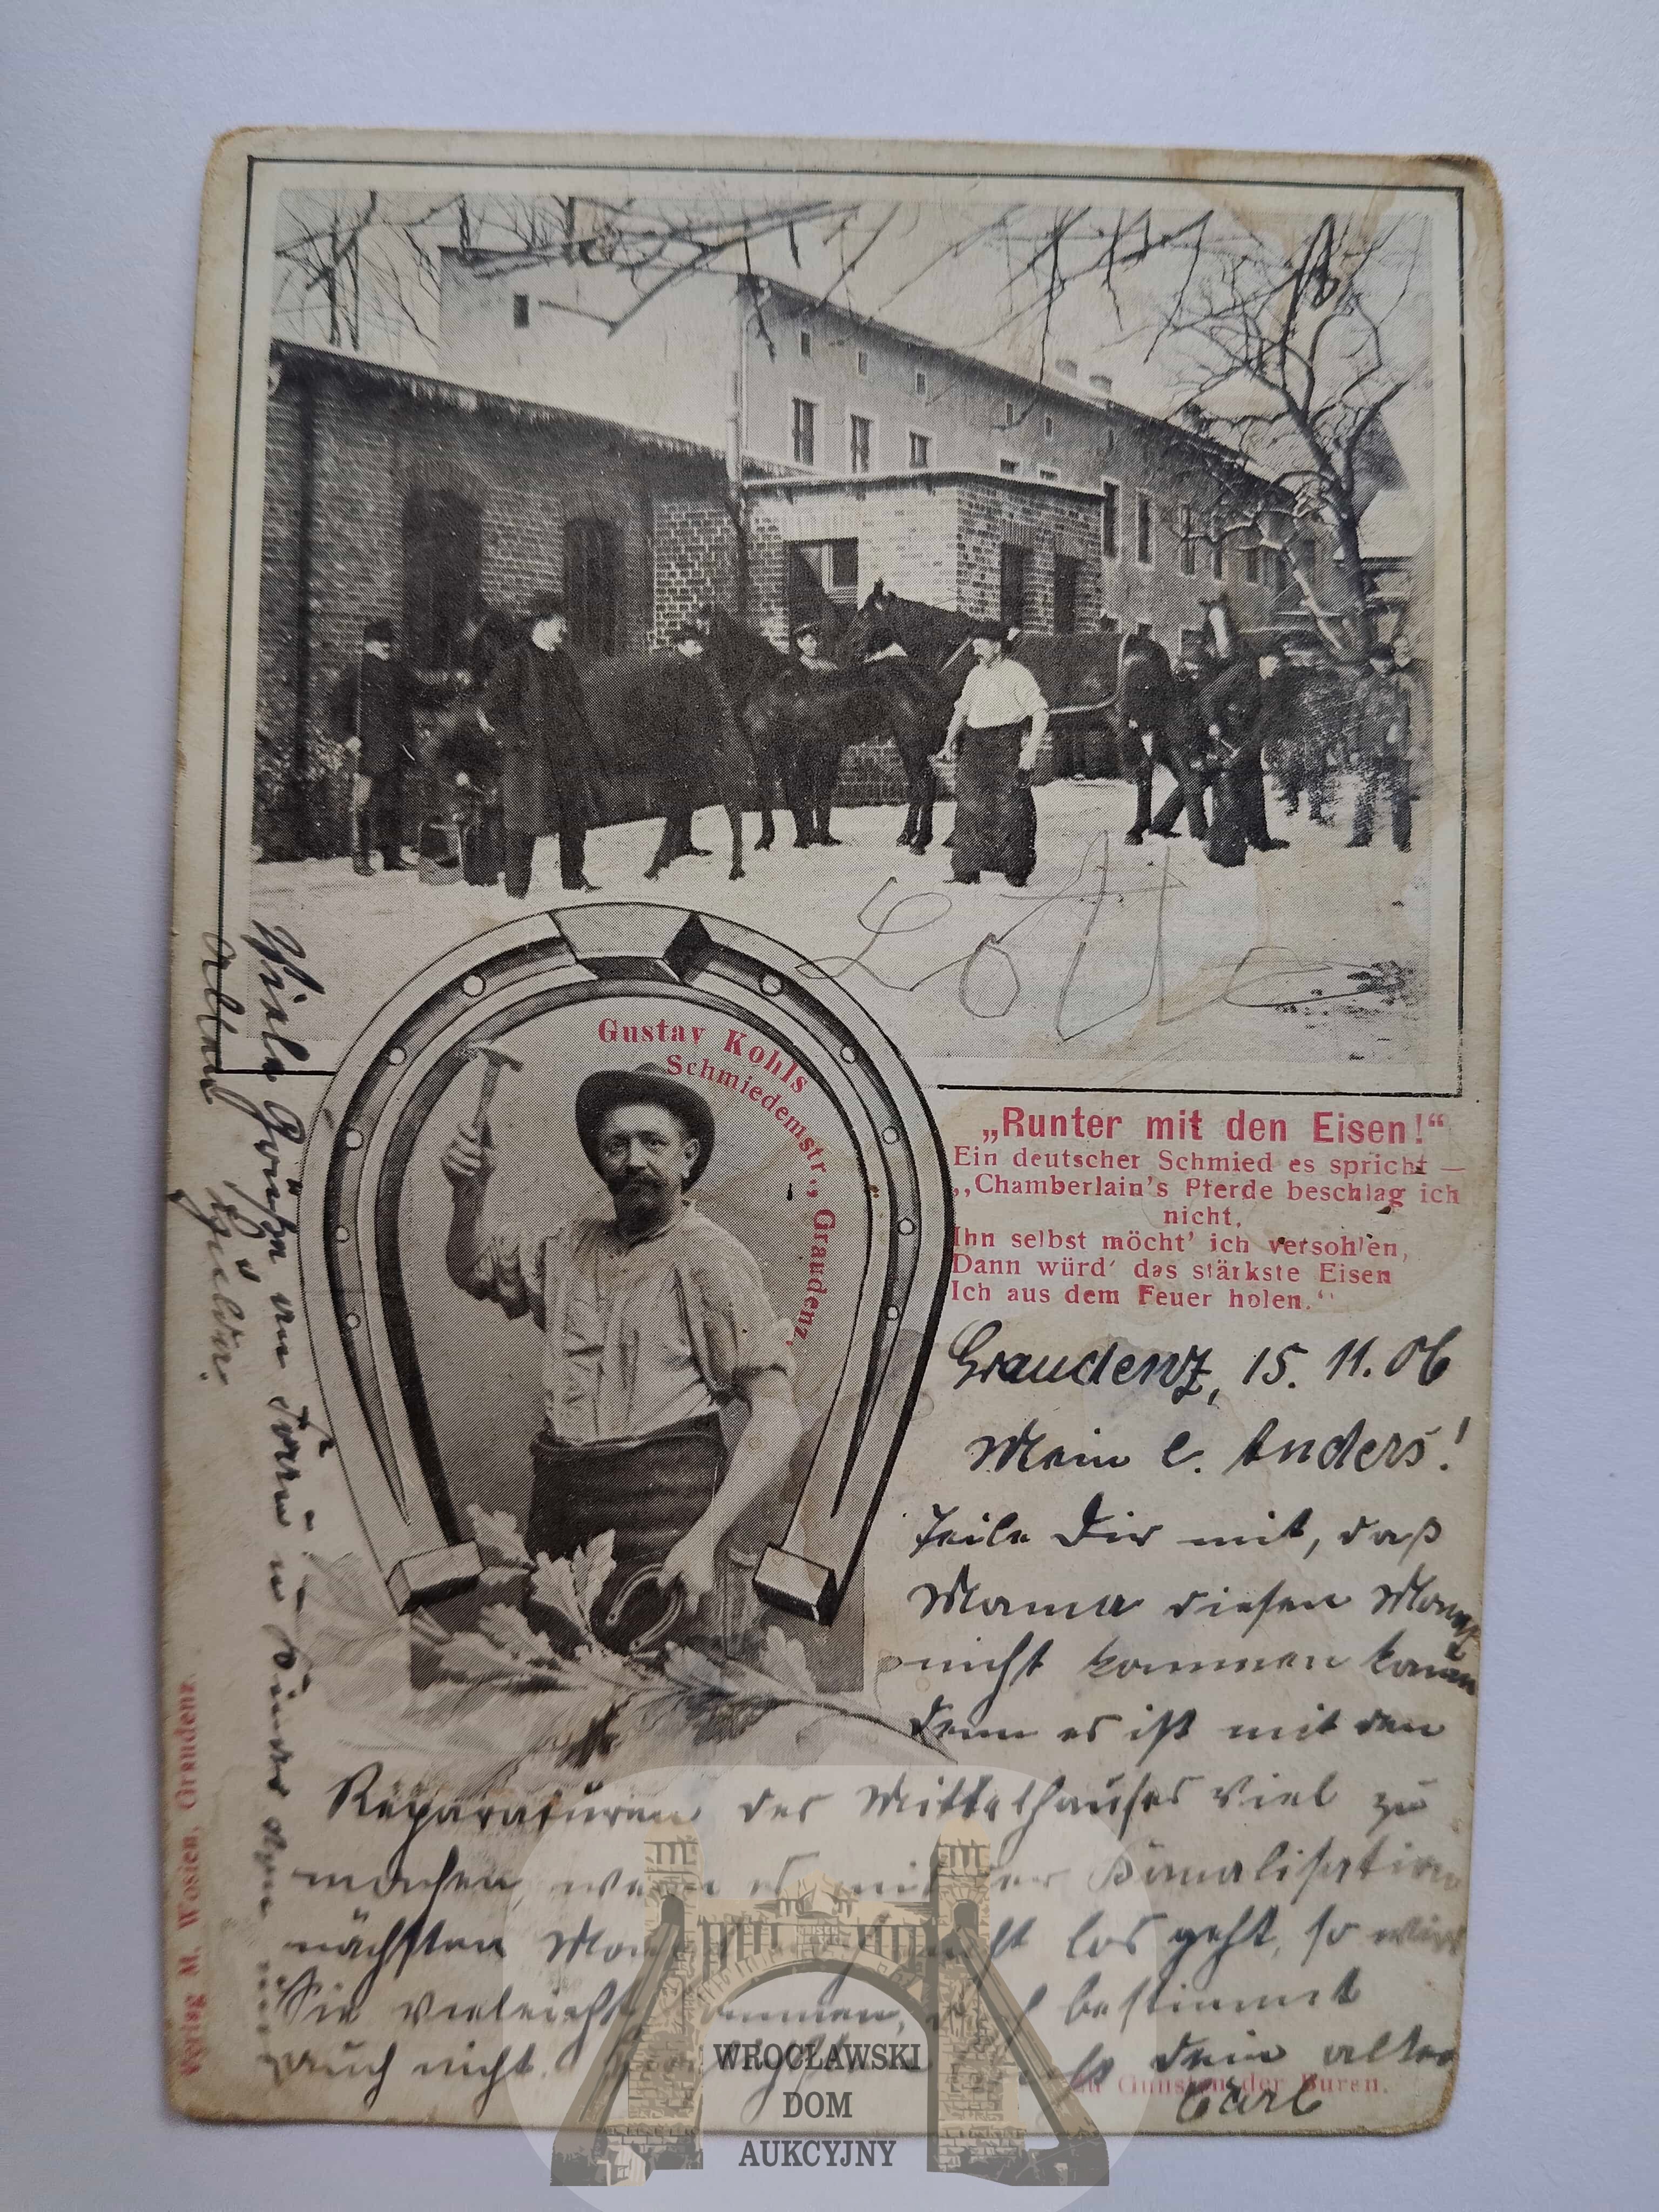 Lotte
Gustav Kohls
Schmiedemstr., Graudenz.
„Runter mit den Eisen!“
Ein deutscher Schmied es spricht —
„Chamberlain's Pferde beschlag ich
nicht,
Ihn selbst möcht' ich versohlen,
Dann würd' das stärkste Eisen
Ich aus dem Feuer holen.“
Graudenz, 15. 11. 06
Mein l. Anders!
Teile Dir mit, daß
Mama diesen Monat
nicht kommen kann
denn es ist mit den
Reparaturen des Mittelhauses viel zu
machen, wenn es mit der Kanalisation
nächsten Monat nicht los geht, so wird
Sie vieleicht kommen, bestimmt
auch nicht. Dein alter
Carl
Zu Gunsten der Buren.
Viele Grüße an
Verlag M. Wosien, Graudenz.
WROCŁAWSKI
DOM
AUKCYJNY